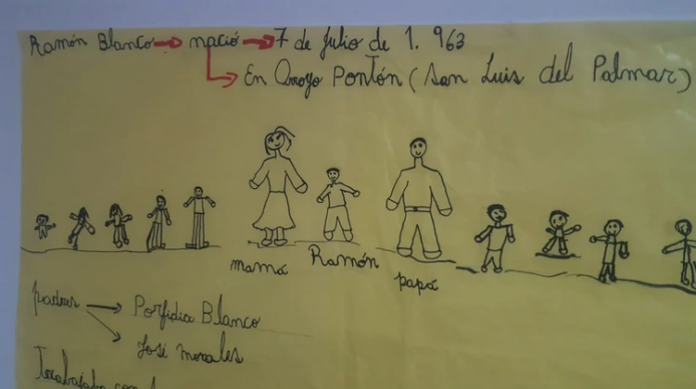 Ramón Blanco → nació → 7 de Julio de 1.963
En Arroyo Pontón (San Luis del Palmar)
mamá Ramón papá
padres → Porfidia Blanco
José Morales